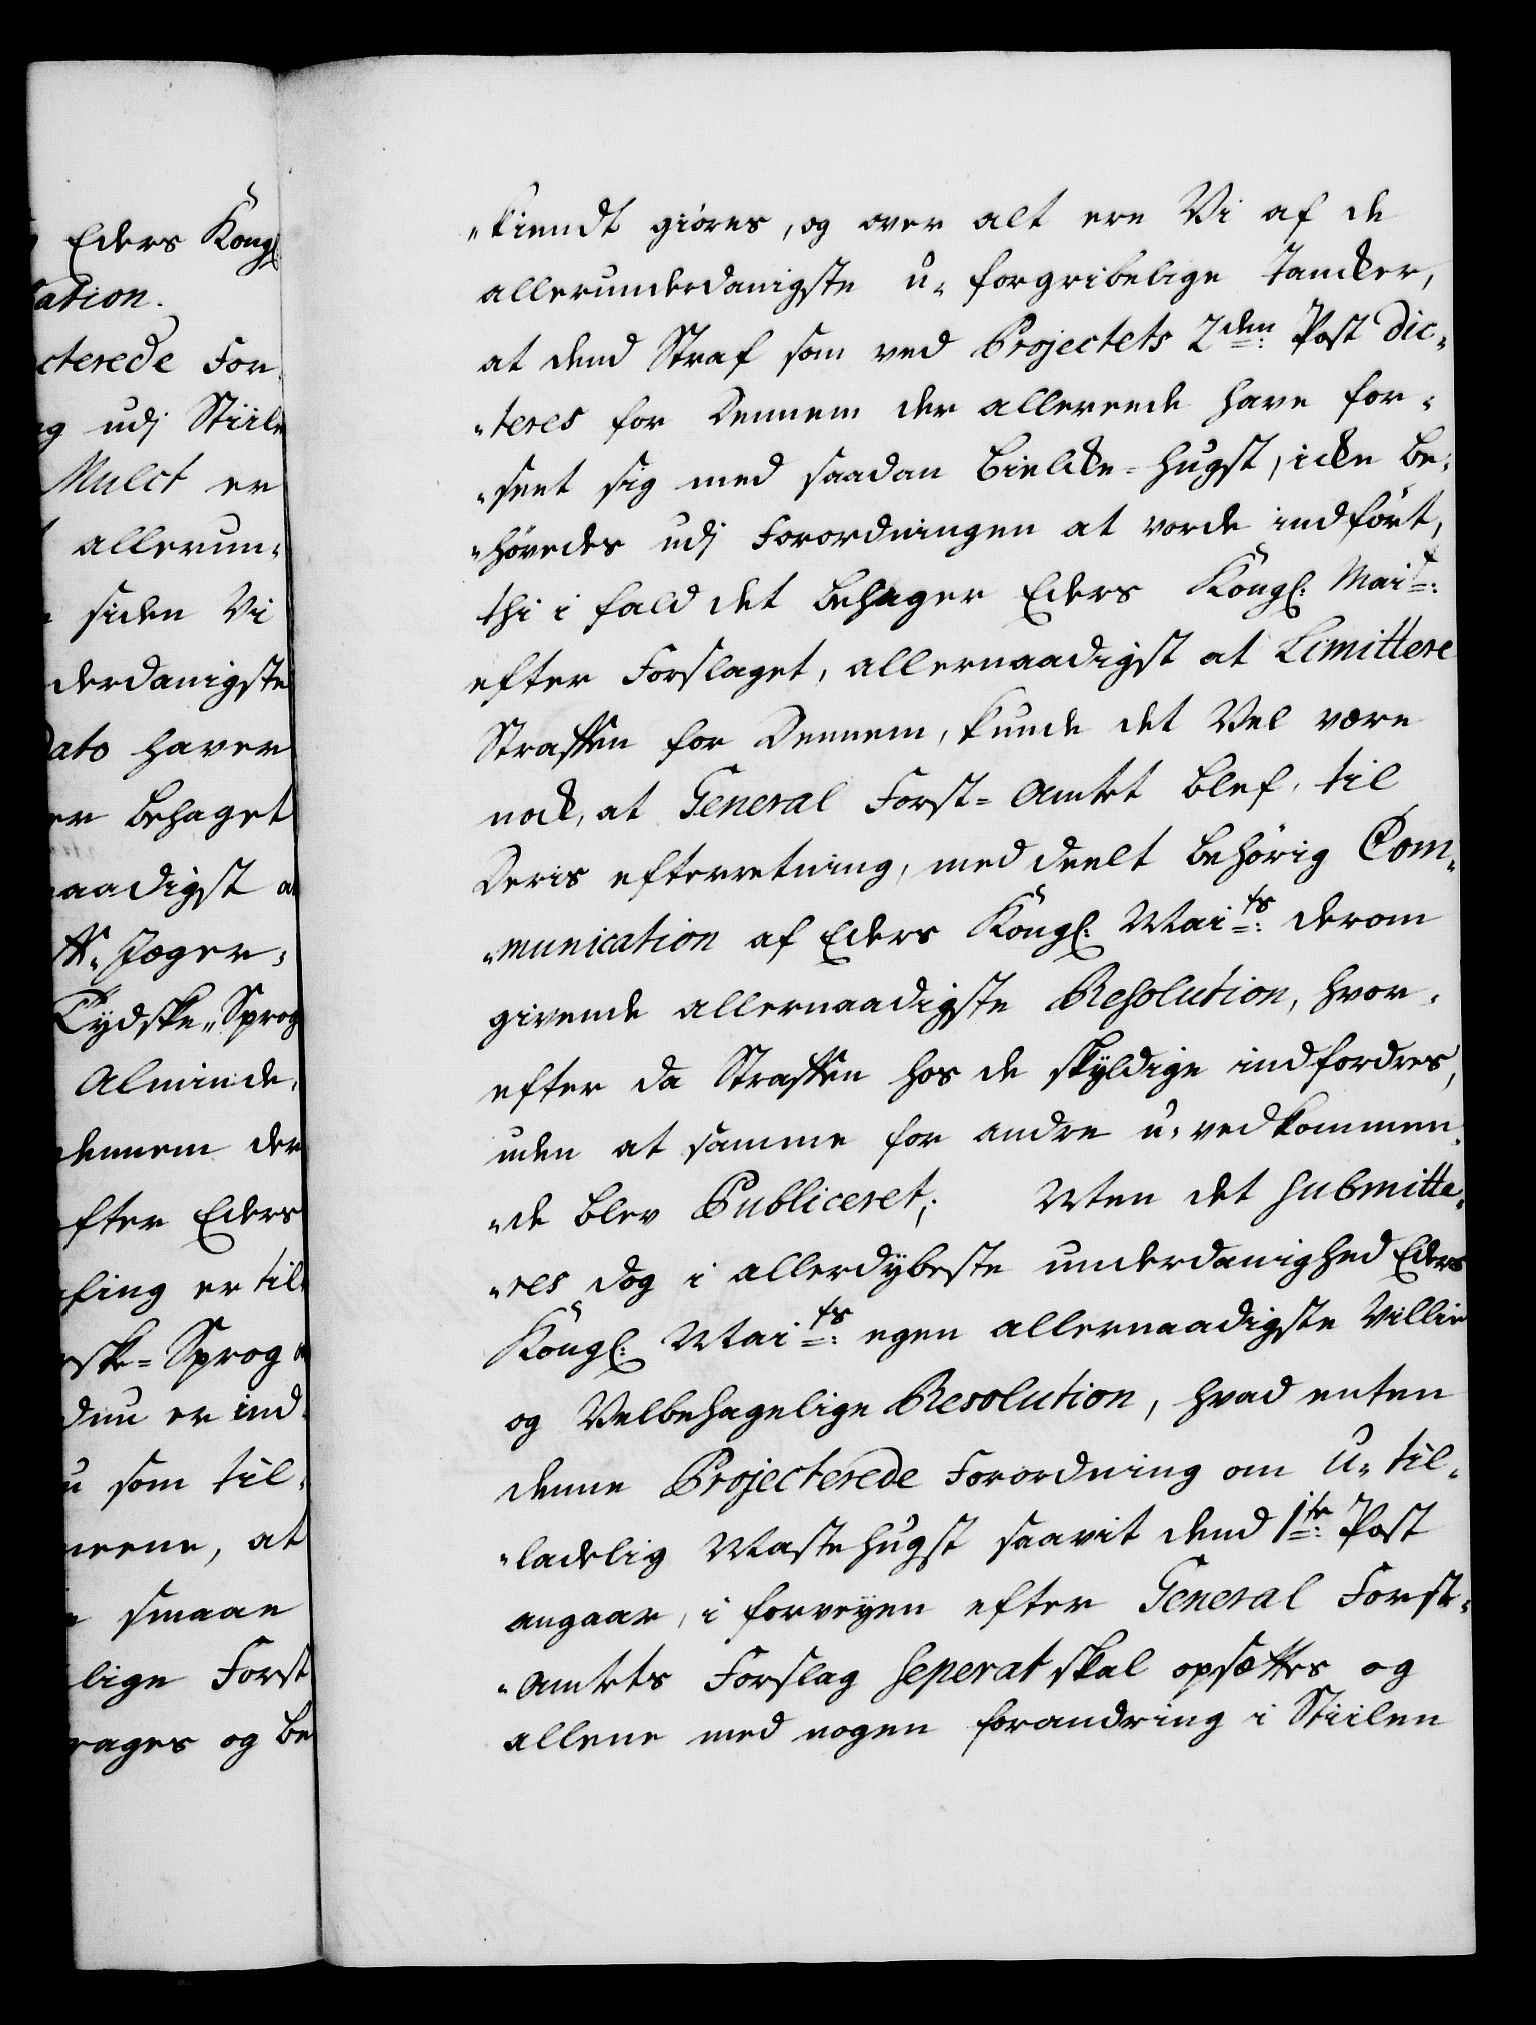 Eders Kongl:
ation.
cterede For
og udj Stiile
Mulct er
allerun„
siden Vi
derdanigste
Dato haver
er behaget
aadigst a
ff„ Jæger„
Tydske„ Sprog
Alminde„
dennem der
efter Eders
fing er til
rske= Sprog
duu er ind
u som til„
meene, at
smaae
lige Forst
rages og be
„kiendt giöres, og over alt ere Vi af de
allerunderdanigste u„ forgribelige Tancker,
at dend Straf som ved Projectets 2den: Post Dic„
„teres for Dennem der allereede have for„
„seet sig med saadan Bielcke=Hugst, icke be„
„hövedes udj Forordningen at vorde indfört,
thi i fald det behager Eders Kongl: Mait:
efter Forslaget, allernaadigst at Limittere
Straffen for Dennem, kunde det Vel være
nock, at General Forst=Amtet blef, til
Deris efterretning, meddeelt behörig Com„
„munication af Eders Kongl: Maits: derom
givende allernaadigste Resolution, hvor„
efter da Straffen hos de skyldige indfordres,
uden at samme for andre u„vedkommen„
„de blev Publiceret; Men det submitte„
„res dog i allerdybeste underdanighed Eders
Kongl: Maits: egen allernaadigste Villie
og Velbehagelige Resolution, hvad enten
denne Projecterede Forordning om U„til„
„ladelig Mastehugst saavit dend 1ste: Post
angaar, i forveyen efter General Forst„
„Amtets Forslag seperat skal opsættes og
allene med nogen forandring i Stiilen